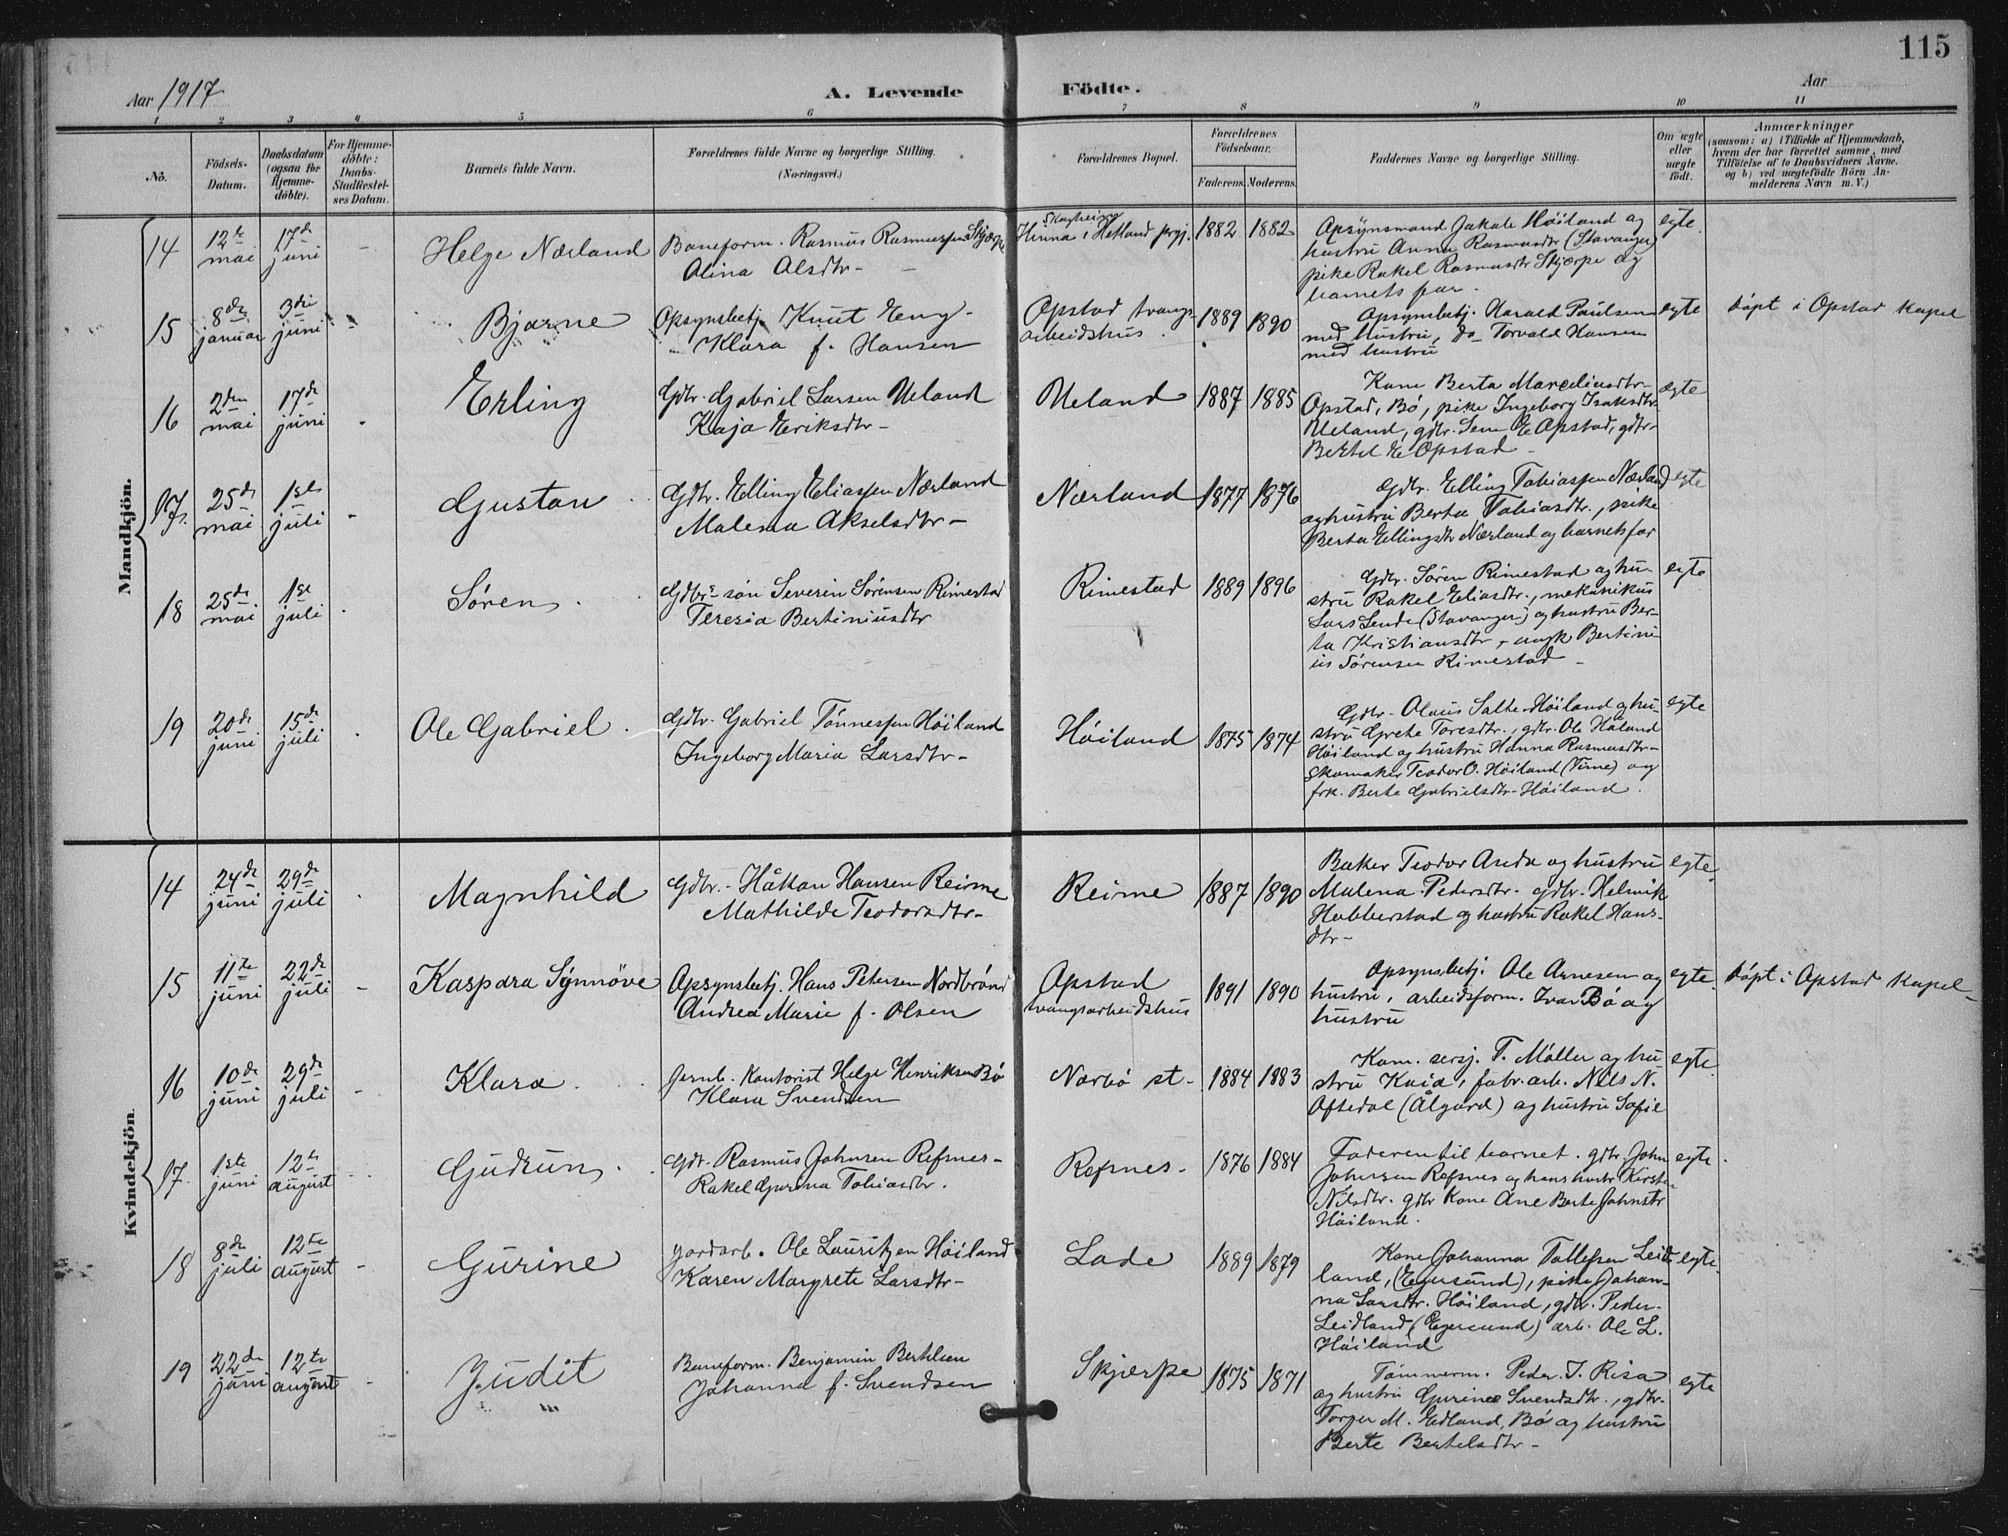 115
Aar 1917
A. Levende
Födte.
Aar
1 2 3 4 5 6 7 8 9 10 11
No.
Födsels-
Datum.
Daabsdatum
(ogsaa for
Hjemme-
döbte).
For Hjemme-
döbte:
Daabs-
Stadfæstel-
ses Datum.
Barnets fulde Navn.
Forældrenes fulde Navne og borgerlige Stilling.
(Næringsvei.)
Forældrenes Bopæl.
Forældrenes
Födselsaar.
Faderens. Moderens.
Faddernes Navne og borgerlige Stilling.
Om ægte
eller
uægte
födt.
Anmærkninger
(saasom: a) i Tilfælde af Hjemmedaab,
hvem der har forrettet samme, med
Tilföielse af to Daabsvidners Navne.
og b) ved uægtefödte Börn An-
melderens Navn m. V.)
Mandkjön.
14
12te
mai
17de
juni
Helge Nærland
Baneform. Rasmus Rasmussen Skjærpe
Alina Olsdtr-
Skagheim
Hinna i Hetland prgj.
1882 1882
Opsynsmand Jakob Höiland og
hustru Anna Rasmusdtr (Stavanger)
pike Rakel Rasmusdtr Skjærpe og
barnets far.
egte.
15
8de
januar
3die
juni
Bjarne
Opsynsbetj. Knut Eeng-
Klara f. Hansen
Opstad tvangs-
arbeidshus.
1889 1890
Opsynsbetj. Harald Paulsen
med hustru, do Torvald Hansen
med hustru
egte
Döpt i Opstad kapel
16
2den
mai
17de
juni
Erling
Gdbr. Gabriel Larsen Ueland
Kaja Eriksdtr-
Ueland
1887 1885
Kone Berta Marseliusdtr-
Opstad, Bö, pike Ingeborg Isaksdtr
Ueland, gdbr. Sem E Opstad, gdbr-
Bertel E Opstad
ægte
17.
25de
mai
1ste
juli
Gustav
Gdbr. Elling Eliassen Nærland
Malena Akselsdtr-
Nærland
1877 1876
Gdbr. Elling Tobiassen Nærland
og hustru Berta Tobiasdtr., pike
Berta Ellingsdtr Nærland og barnets far
egte
18
25de
mai
1ste
juli
Sören
Gdbrs sön Severin Sörensen Rimestad
Teresia Bertiniusdtr
Rimestad
1889 1896
Gdbr. Sören Rimestad og hu-
stru Rakel Eliasdtr., mekanikus
Lars Lende (Stavanger) og hustru Ber-
ta Kristiansdtr, ungk Bertini-
us Sörensen Rimestad-
egte
19
20de
juni
15de
juli
Ole Gabriel
Gdbr. Gabriel Tönnessen Höiland
Ingeborg Maria Larsdtr-
Höiland
1875 1874
Gdbr. Olaus Salte Höiland og hu-
stru Grete Toresdtr., gdbr. Ole Håland
Höiland og hustru Hanna Rasmusdtr-
skomaker Teodor O. Höiland (Time) og
frk. Berte Gabrielsdtr. Höiland.
egte
Kvindekjön.
14
24de
juni
29de
juli
Magnhild
Gdbr. Håkon Hansen Reime
Mathilde Teodorsdtr-
Reime
1887 1890
Baker Teodor Anda og hustru
Malena Pedersdtr. gdbr. Helmik
Hobberstad og hustru Rakel Hans-
dtr-
egte.
15
11te
juni
22de
juli
Kaspara Synnöve
Opsynsbetj. Hans Petersen Nordbrönd
Andrea Marie f. Olsen
Opstad
tvangsarbeidshus
1891 1890
Opsynsbetj. Ole Arnesen og
hustru, arbeidsform. Ivar Bö og
hustru
egte.
Döpt i Opstad kapel-
16
10de
juni
29de
juli
Klara
Jernb. kontorist Helge Henriksen Bö
Klara Svendsen
Nærbö st-
1884 1883
Kom. sersj. T. Möller og hu-
stru Kaia, fabr. arb. Nils N.
Oftedal (Ålgård) og hustru Sofie
egte.
17.
1ste
juni
12te
august
Gudrun
Gdbr. Rasmus Johnsen Refsnes-
Rakel Gurina Tobiasdtr.
Refsnes-
1876 1884
Faderen til barnet. gdbr. John
Johnsen Refsnes og hans hustr Kirsti
Nilsdtr. gdbr kone Ane Berte Johnsdtr
Höiland.
egte.
18
8de
juli
12te
august
Gurine
Jordarb. Ole Lauritzen Höiland
Karen Margrete Larsdtr-
Lode
1889 1879
Kone Johanna Tollefsen Leid-
land, (Egersund), pike Johan-
na Larsdtr. Höiland, gdbr. Peder-
Leidland (Egersund) arb. Ole L.
Höiland
egte.
19
22de
juni
12te
august
Judit
Baneform. Benjamin Bertelsen
Johanna f. Svendsen
Skjærpe
1875 1871
Tömmerm. Peder J. Risa
og hustru Gurine Svendsdtr., gdbr.
Torger M. Edland, Bö og hustru
Berte Bertelsdtr-
egte